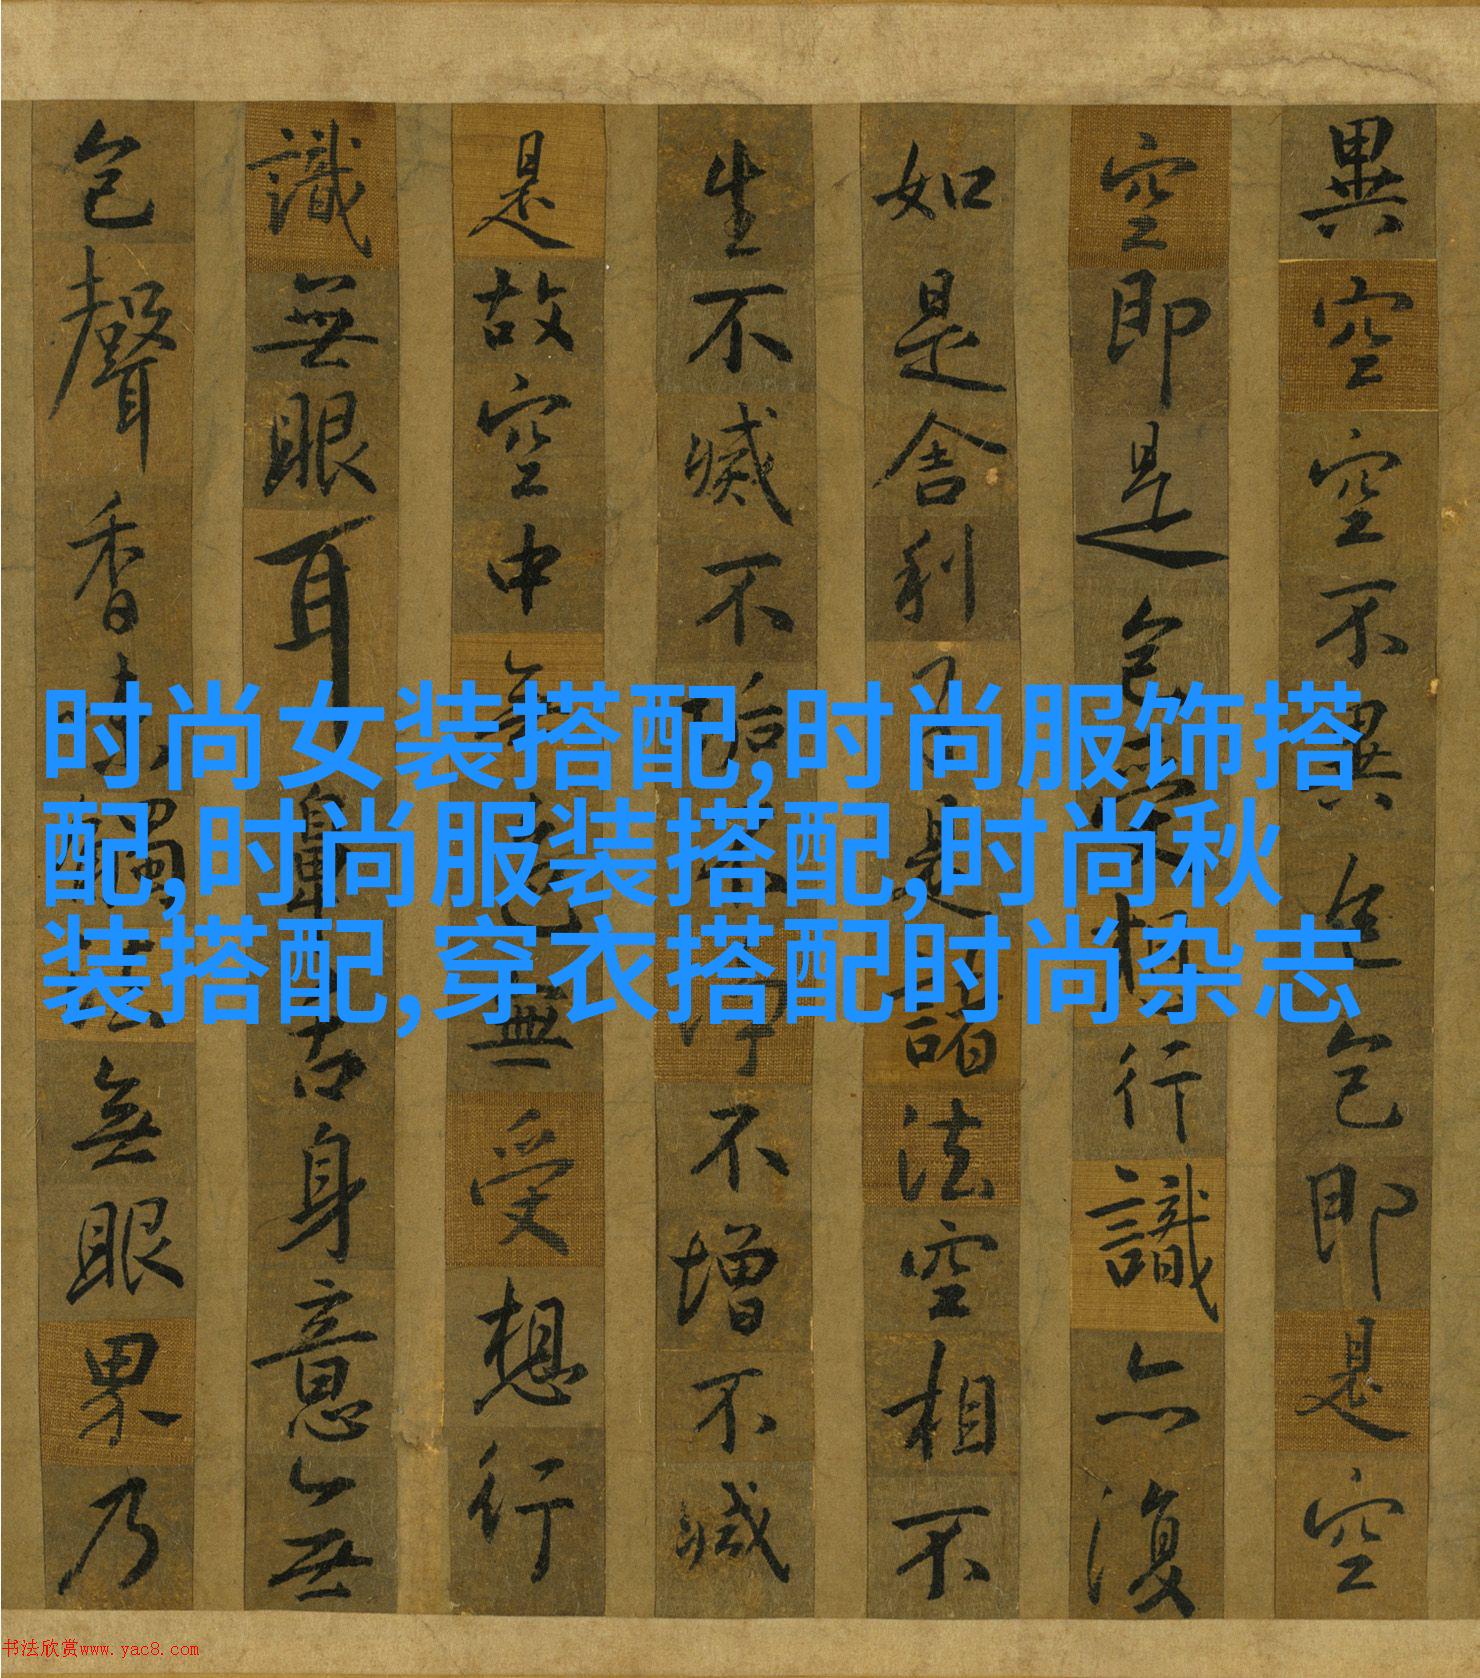 異空空不異色色即是空
空即是色受想行識亦復
如是舍利子是諸法空相不
生不滅不垢不淨不增不減
是故空中無色無受想行
識無眼耳鼻舌身意無
色聲香味觸法無眼界乃
时尚女装搭配,时尚服饰搭
配,时尚服装搭配,时尚秋
装搭配,穿衣搭配时尚杂志
书法欣赏www.yac8.com